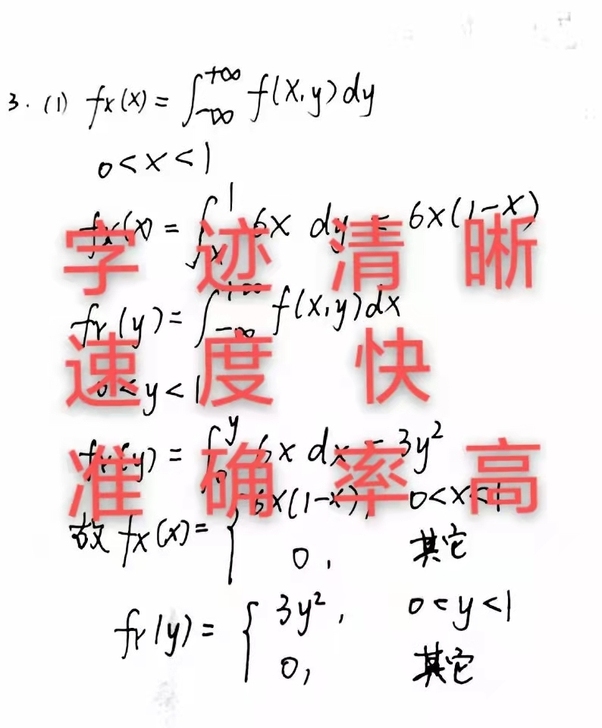 3. (1) fx(x) = ∫_{-∞}^{+∞} f(x,y)dy
0<x<1
fx(x) = ∫_x^1 6x dy = 6x(1-x)
字迹清晰
fY(y) = ∫_{-∞}^{+∞} f(x,y)dx
速度快
0<y<1
fY(y) = ∫_0^y 6x dx = 3y²
准确率高
故 fx(x) = { 6x(1-x), 0<x<1
0, 其它
fY(y) = { 3y², 0<y<1
0, 其它